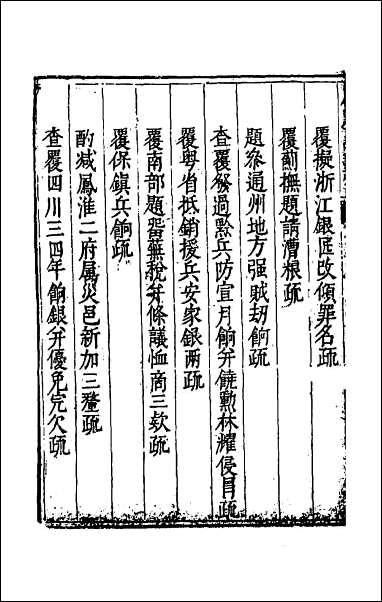 覆擬浙江銀匠改傾罪名疏
覆薊撫題請漕糧疏
題叅通州地方强賊刼餉疏
查覆發過黔兵防宜月餉并饒勲林耀侵冒疏
覆粤省抵銷援兵安家銀兩疏
覆南部題留蕪稅并條議恤商三欵疏
覆保鎮兵餉疏
酌减鳳淮二府属災邑新加三釐疏
查覆四川三四年餉銀弁優免完欠疏